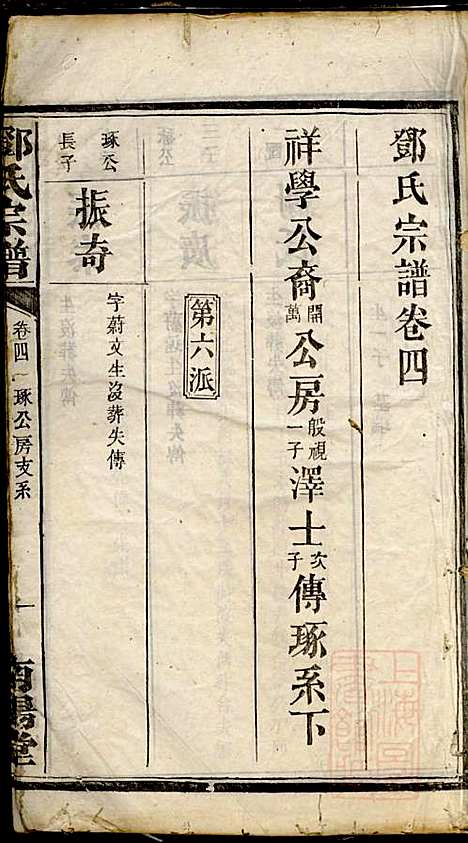 鄧氏宗譜卷四
祥學公裔開萬公房殷視一子澤士次子傳琢系下
第六派
琢公長子
振奇
字蔚文生沒葬失傳
鄧氏宗譜
卷四
琢公房支系
一
南陽堂